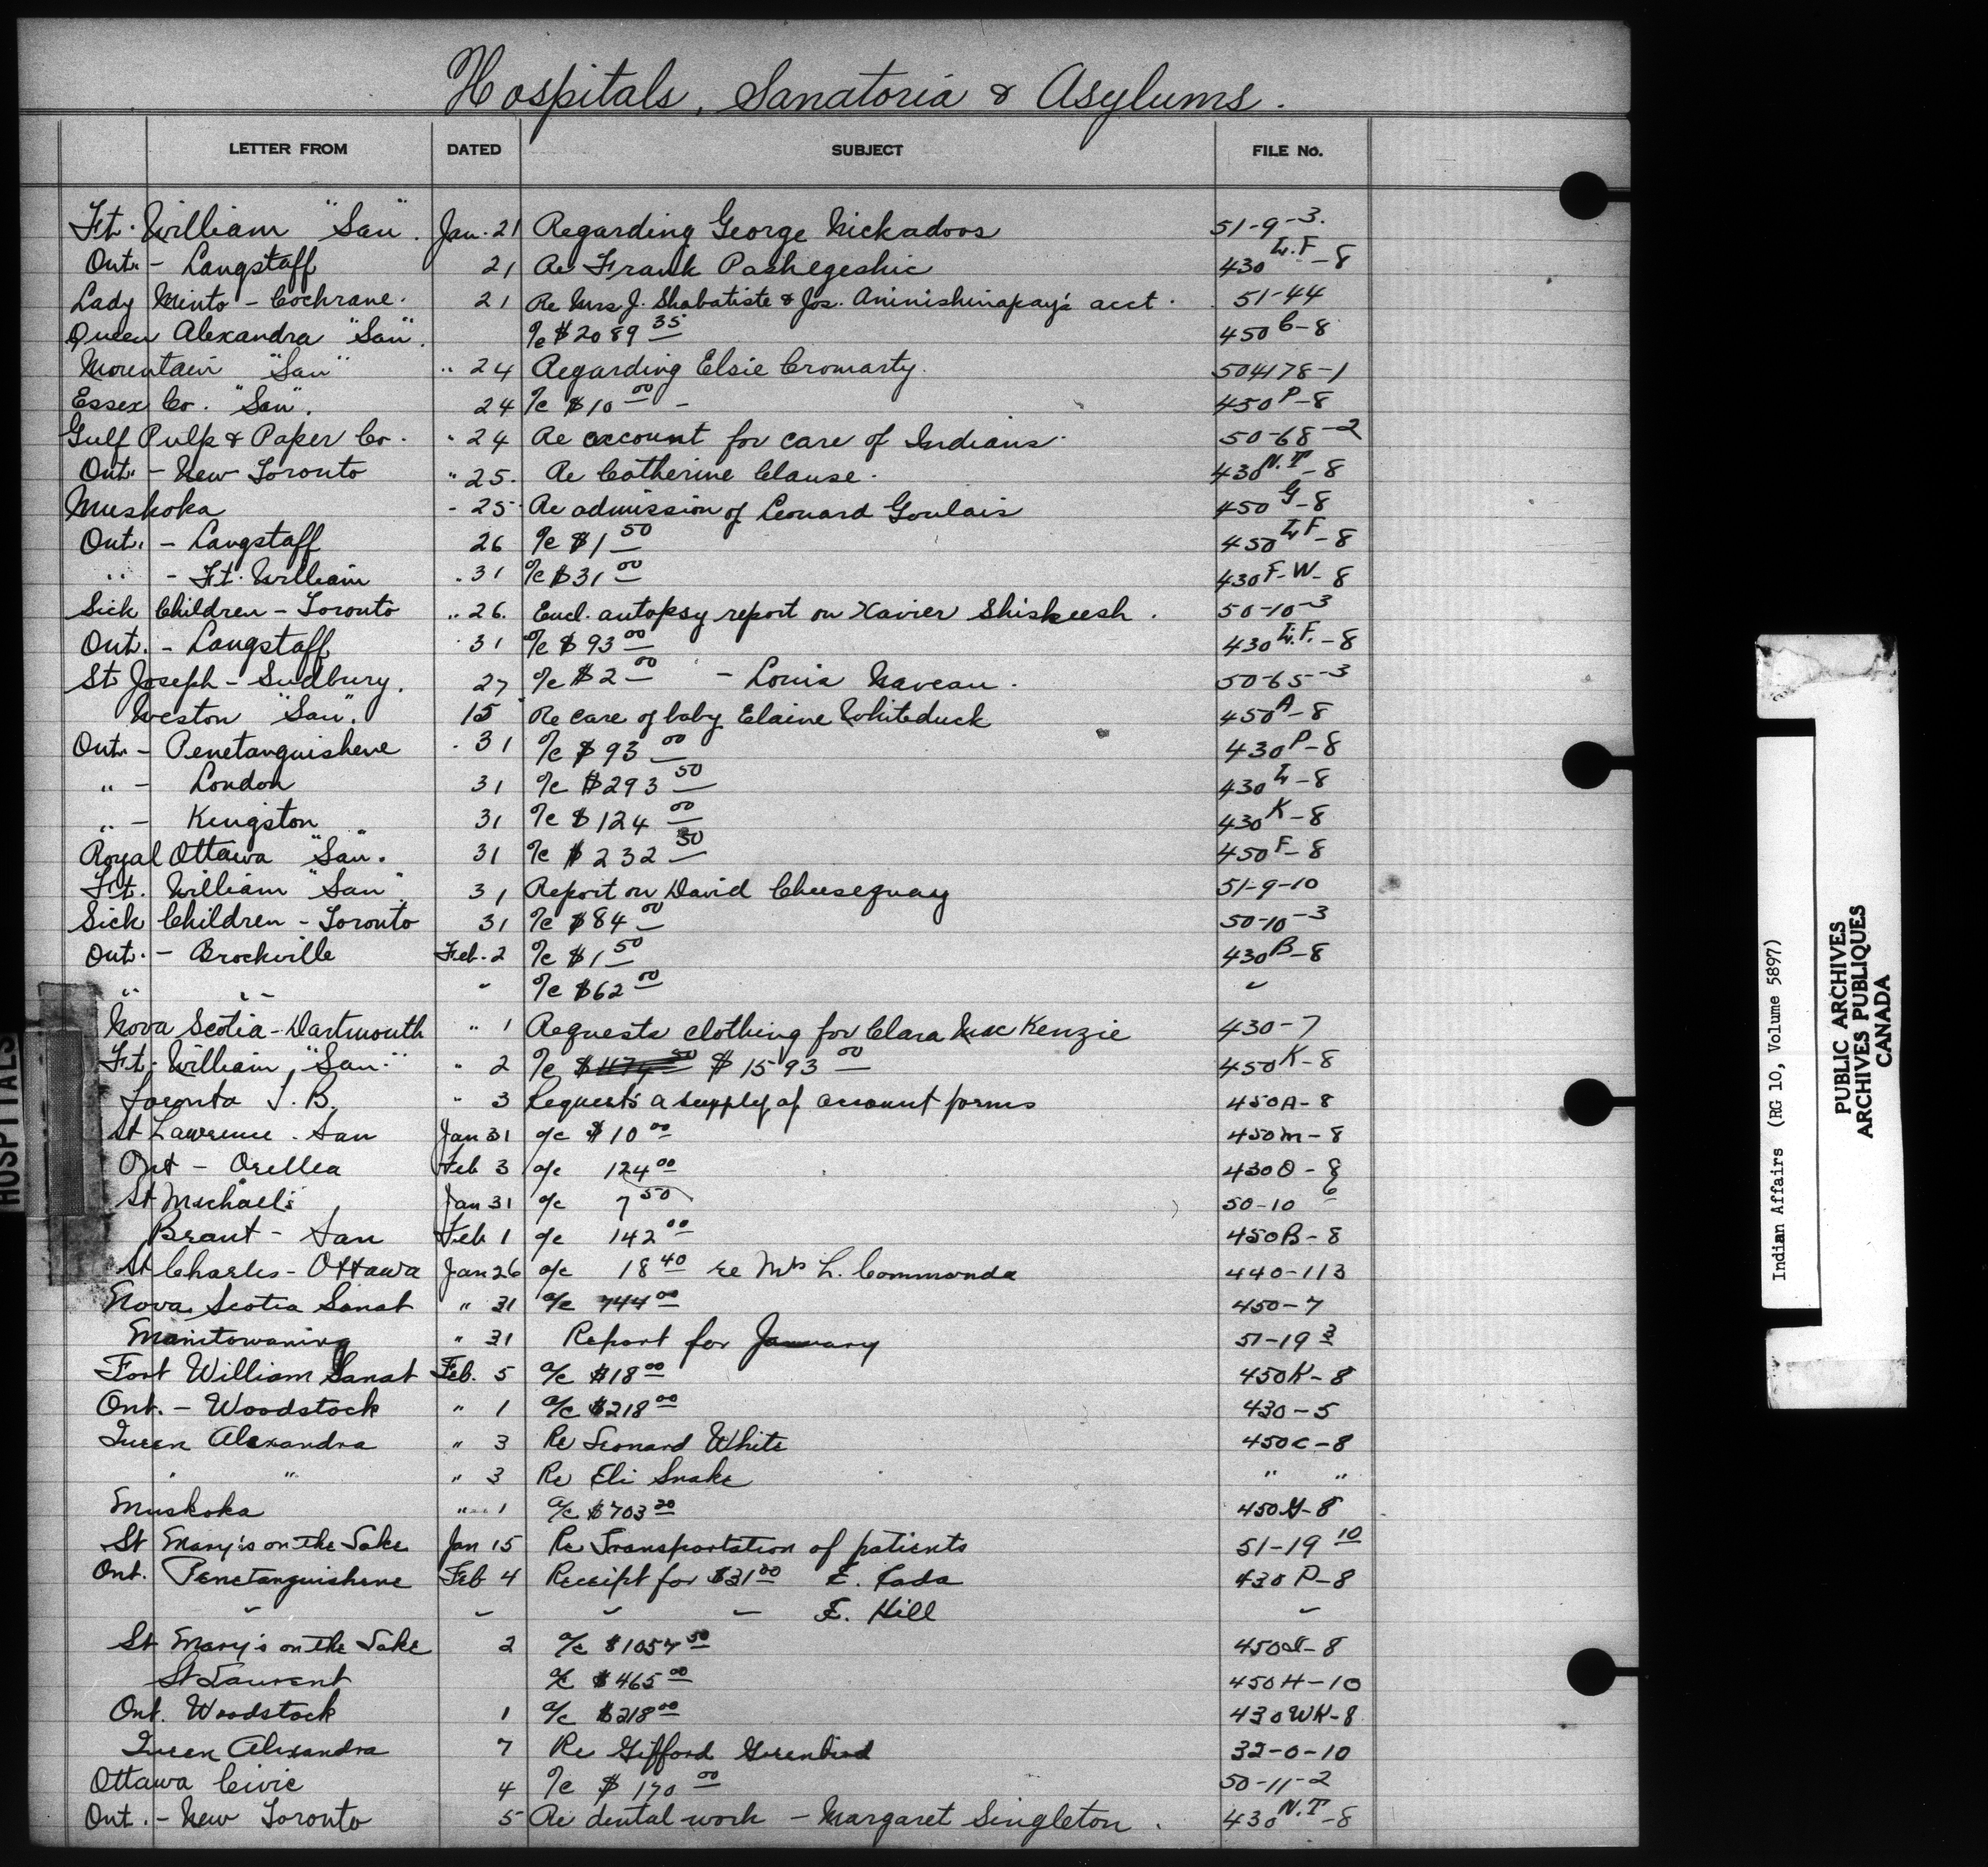 Hospitals, Sanatoria & Asylums.
LETTER FROM DATED SUBJECT FILE No.
Ft. William "San". Jan. 21 Regarding George Nickadoos 51-9-3.
Ont. - Langstaff 21 Re Frank Pashegeshic 430 L.F-8
Lady Minto - Cochrane. 21 Re Mrs J. Shabatiste & Jos. Aninishinapay's acct. 51-44
Queen Alexandra "San". a/c $2089 35 450 C-8
Mountain "San" " 24 Regarding Elsie Cromarty. 504178-1
Essex Co. "San". 24 a/c $10 00 - 450 P-8
Gulf Pulp & Paper Co. " 24 Re account for care of Indians. 50-68-2
Ont. - New Toronto " 25. Re Catherine Clause. 430 N.T-8
Muskoka - 25 Re admission of Leonard Goulais 450 G-8
Ont. - Langstaff 26 a/c $1 50 450 LF-8
" - Ft. William " 31 a/c $31 00 430 F-W-8
Sick Children - Toronto " 26. Encl. autopsy report on Xavier Shiskeesh. 50-10-3
Ont. - Langstaff " 31 a/c $93 00 430 L.F.-8
St. Joseph - Sudbury. 27 a/c $2 00 - Louis Naveau. 50-65-3
Weston "San". 15 Re care of baby Elaine Whiteduck 450 A-8
Ont. - Penetanguishene " 31 a/c $93 00 430 P-8
" - London 31 a/c $293 50 430 L-8
" - Kingston 31 a/c $124 00 430 K-8
Royal Ottawa "San". 31 a/c $232 50 450 F-8
Ft. William "San" 31 Report on David Cheesequay 51-9-10
Sick Children - Toronto 31 a/c $84 00 50-10-3
Ont. - Brockville Feb. 2 a/c $1 50 430 B-8
" " " a/c $62 00 "
Nova Scotia - Dartmouth " 1 Requests clothing for Clara MacKenzie 430-7
Ft. William "San" " 2 a/c $1593 00 450 K-8
Toronto T.B. " 3 Requests a supply of account forms 450A-8
St Lawrence. San Jan 31 a/c $10 00 450M-8
Ont - Orillia Feb 3 a/c 124 00 430 O-8
St Michael's Jan 31 a/c 7 50 50-10 6
Brant - San Feb 1 a/c 142 00 450B-8
St Charles - Ottawa Jan 26 a/c 18 40 re Mrs L. Commonda 440-113
Nova Scotia Sanat " 31 a/c 744 00 450-7
Manitowaning " 31 Report for January 51-19 3
Fort William Sanat Feb. 5 a/c $18 00 450K-8
Ont. - Woodstock " 1 a/c $218 00 430-5
Queen Alexandra " 3 Re Leonard White 450C-8
" " " 3 Re Eli Snake " "
Muskoka " 1 a/c $703 20 450G-8
St Mary's on the Lake Jan 15 Re Transportation of patients 51-19 10
Ont. Penetanguishene Feb 4 Receipt for $31 00 E. Cada 430 P-8
" " " " F. Hill "
St Mary's on the Lake 2 a/c $1057 50 450I-8
St Laurent a/c $465 00 450H-10
Ont. Woodstock 1 a/c $218 00 430WK-8
Queen Alexandra 7 Re Gifford Greenbird 32-0-10
Ottawa Civic 4 a/c $170 00 50-11-2
Ont. - New Toronto 5 Re dental work - Margaret Singleton. 430 N.T-8
HOSPITALS
Indian Affairs (RG 10, Volume 5897)
PUBLIC ARCHIVES
ARCHIVES PUBLIQUES
CANADA